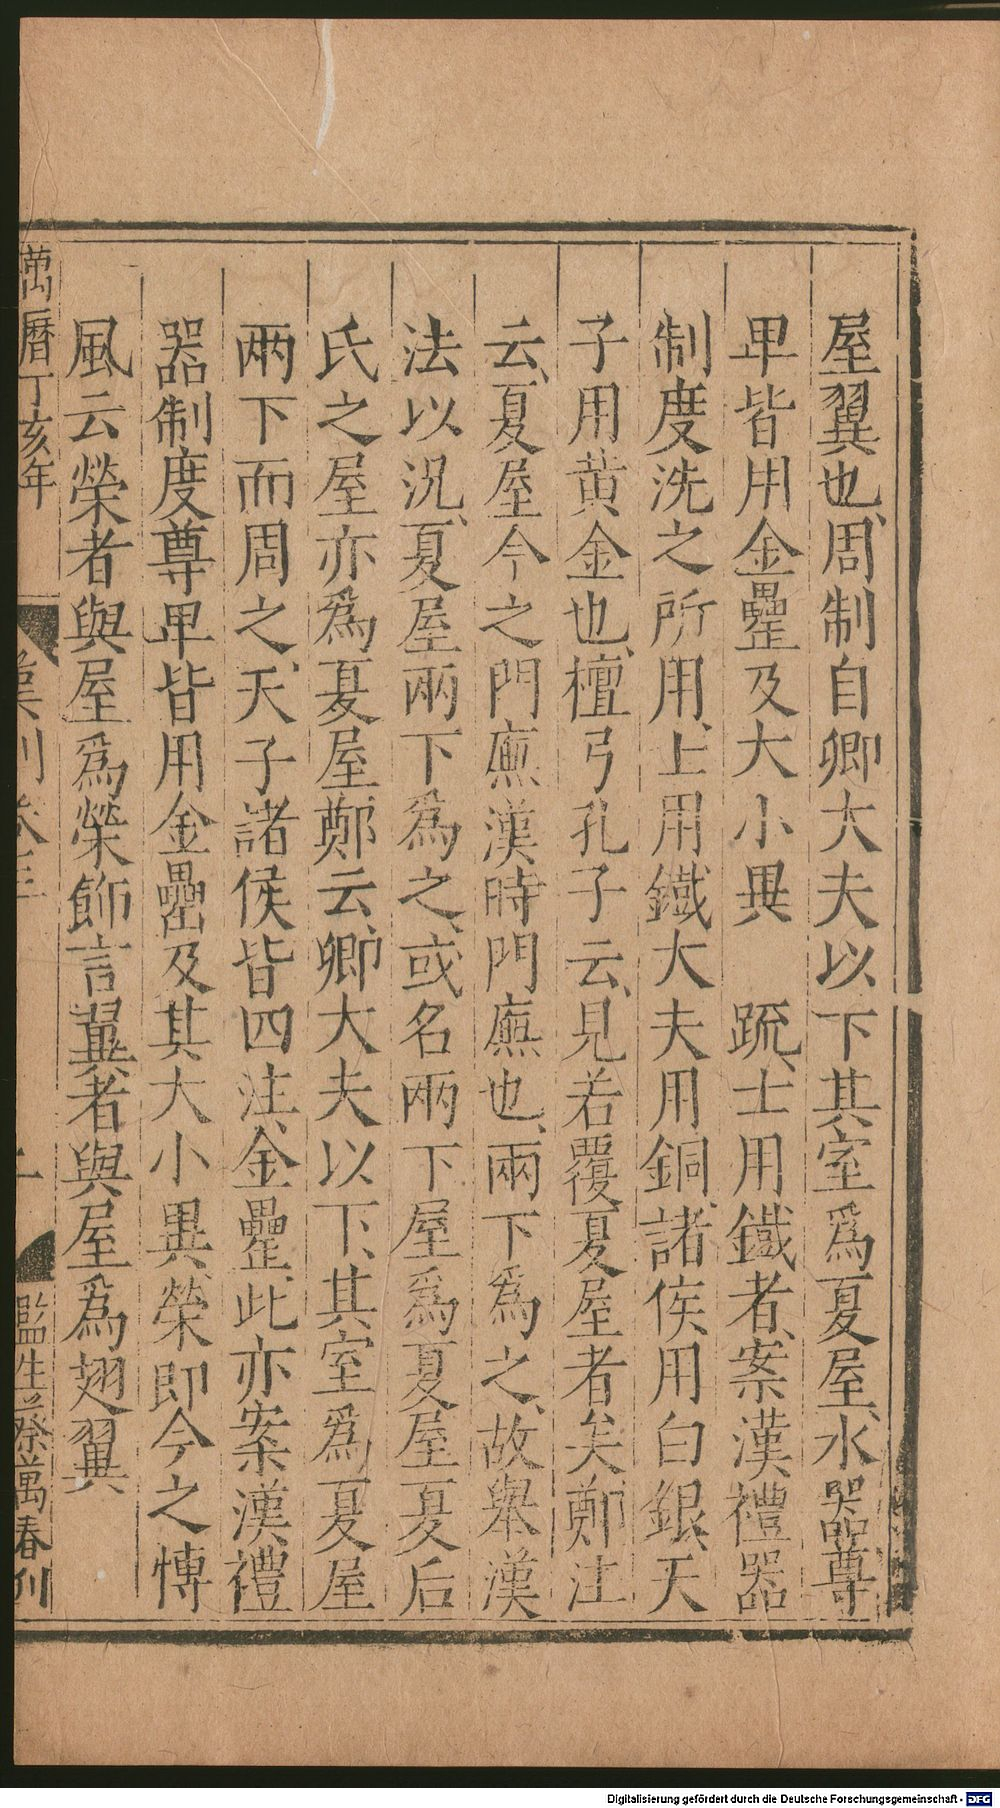 屋翼也、周制自卿大夫以下其室爲夏屋、水器尊
甲皆用金罍及大小異　疏、士用鐵者、案漢禮器
制度洗之所用、上用鐵大夫用銅、諸侯用白銀、天
子用黄金也、檀弓孔子云、見若覆夏屋者矣鄭注
云、夏屋今之門廡漢時門廡也、兩下爲之、故舉漢
法以況、夏屋兩下爲之、或名兩下屋爲夏屋夏后
氏之屋亦爲夏屋鄭云、卿大夫以下、其室爲夏屋
兩下而周之、天子諸侯皆四注、金罍、此亦案漢禮
器制度尊甲皆用金罍及其大小異榮即今之愽
風云榮者與屋爲榮飾言翼者與屋爲翅翼
萬曆丁亥年
監生蔡萬春刊
Digitalisierung gefördert durch die Deutsche Forschungsgemeinschaft - DFG